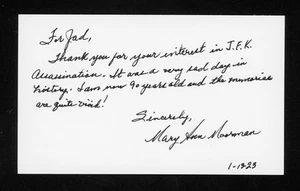 For Jad,
Thank you for your interest in J.F.K.
Assassination. It was a very sad day in
history. I am now 90 years old and the memories
are quite vivid!
Sincerely,
Mary Ann Moorman
1-13-23